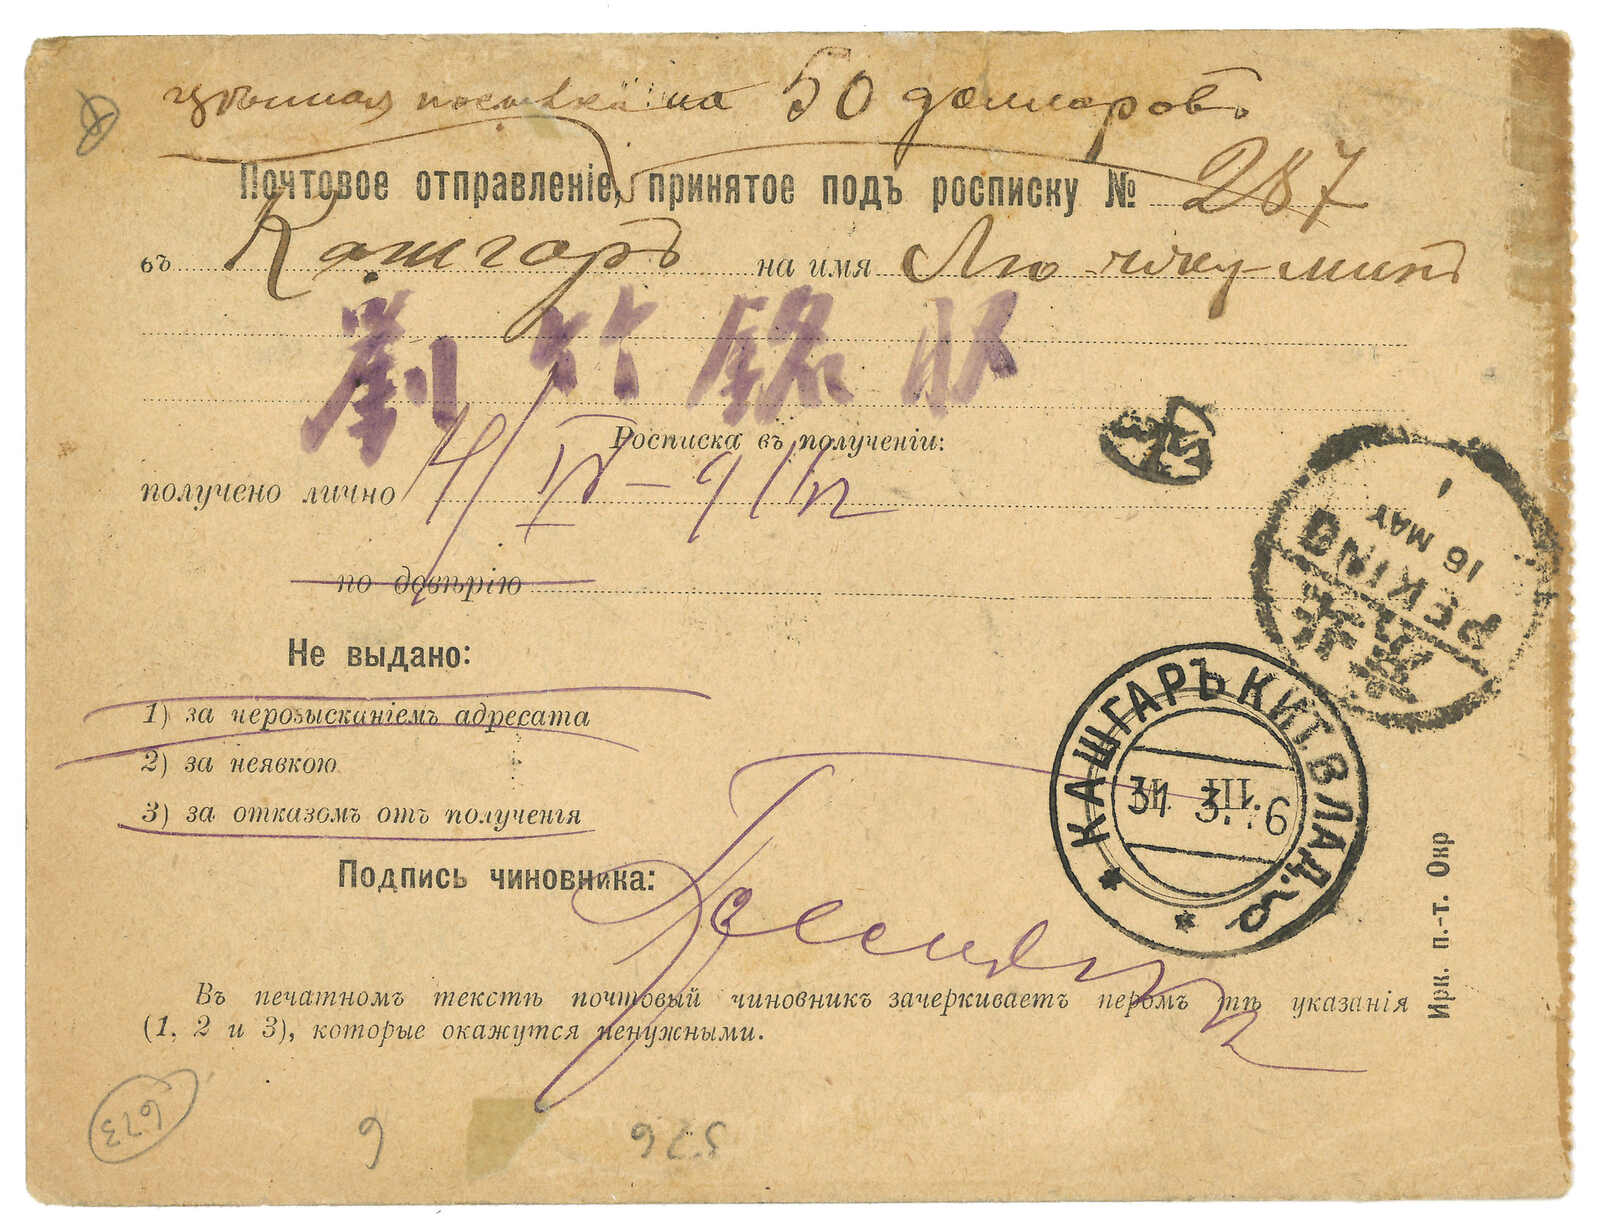 цѣнная посылка на 50 долларовъ
Почтовое отправленіе, принятое подъ росписку № 287
въ Кашгаръ на имя Лю-чжу-минъ
劉竹銘收
Росписка въ полученіи:
получено лично 4/IV-91
по довѣрію
Не выдано:
1) за нерозысканіемъ адресата
2) за неявкою
3) за отказомъ отъ полученія
Подпись чиновника:
Въ печатномъ текстѣ почтовый чиновникъ зачеркиваетъ перомъ тѣ указанія
(1, 2 и 3), которые окажутся ненужными.
PEKING
16 MAY
北京
КАШГАРЪ КИТ. ВЛАД.
31 3. .6
Ирк. п.-т. Окр
673
6
576